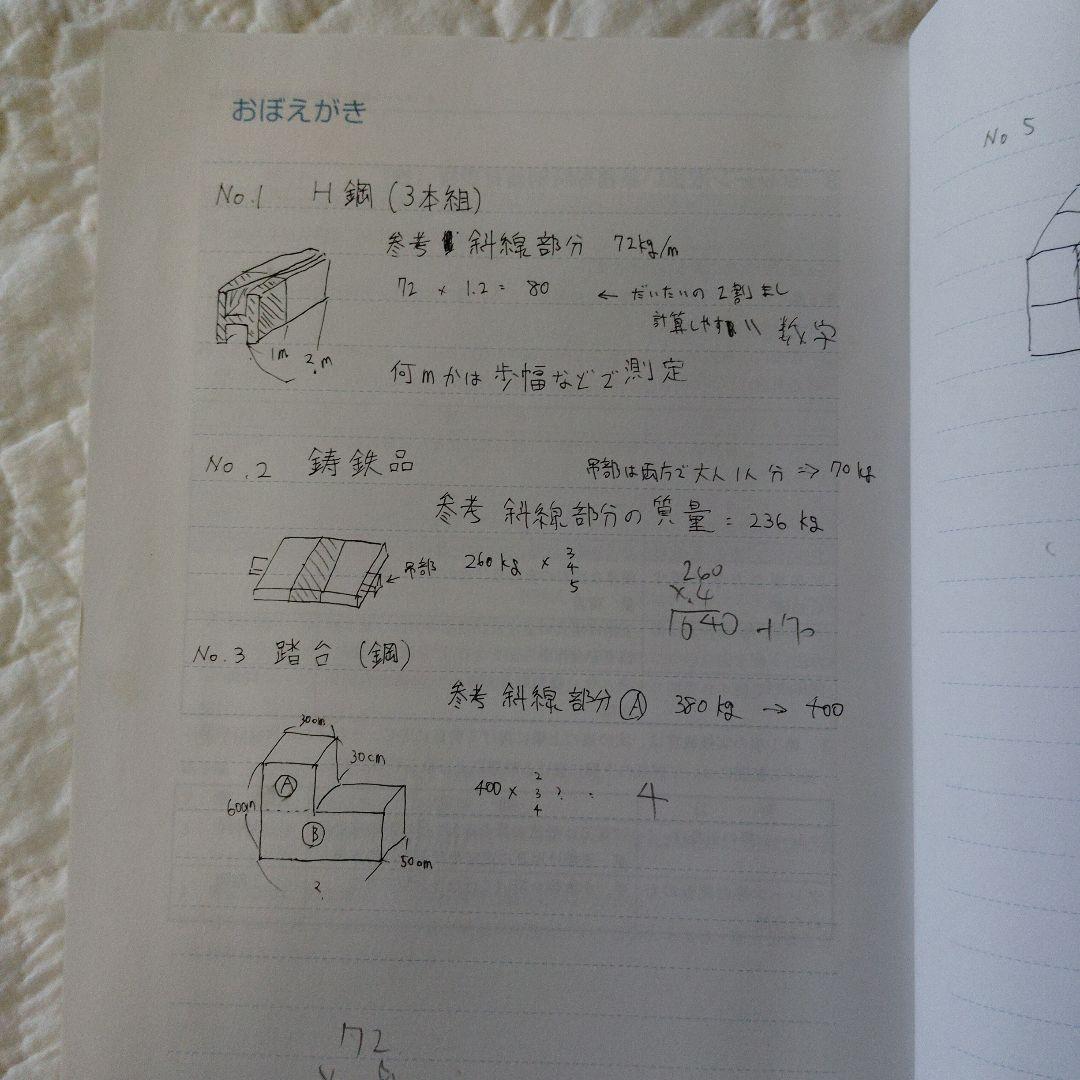 おぼえがき
No.1 H鋼(3本組)
参考 斜線部分 72kg/m
72 × 1.2 = 80 ← だいたいの2割まし
計算しやすい 数字
1m
2m
何mかは歩幅などで測定
No.2 鋳鉄品 吊部は両方で大人1人分 ⇒ 70kg
参考 斜線部分の質量 = 236kg
← 吊部 260kg × 3
4
5
260
×.4
1040 +70
No.3 踏台(鋼)
参考 斜線部分 Ⓐ 380kg → 400
30cm
30cm
Ⓐ
60cm
Ⓑ
400 × 2
3 ? = 4
4
50cm
?
72
No 5